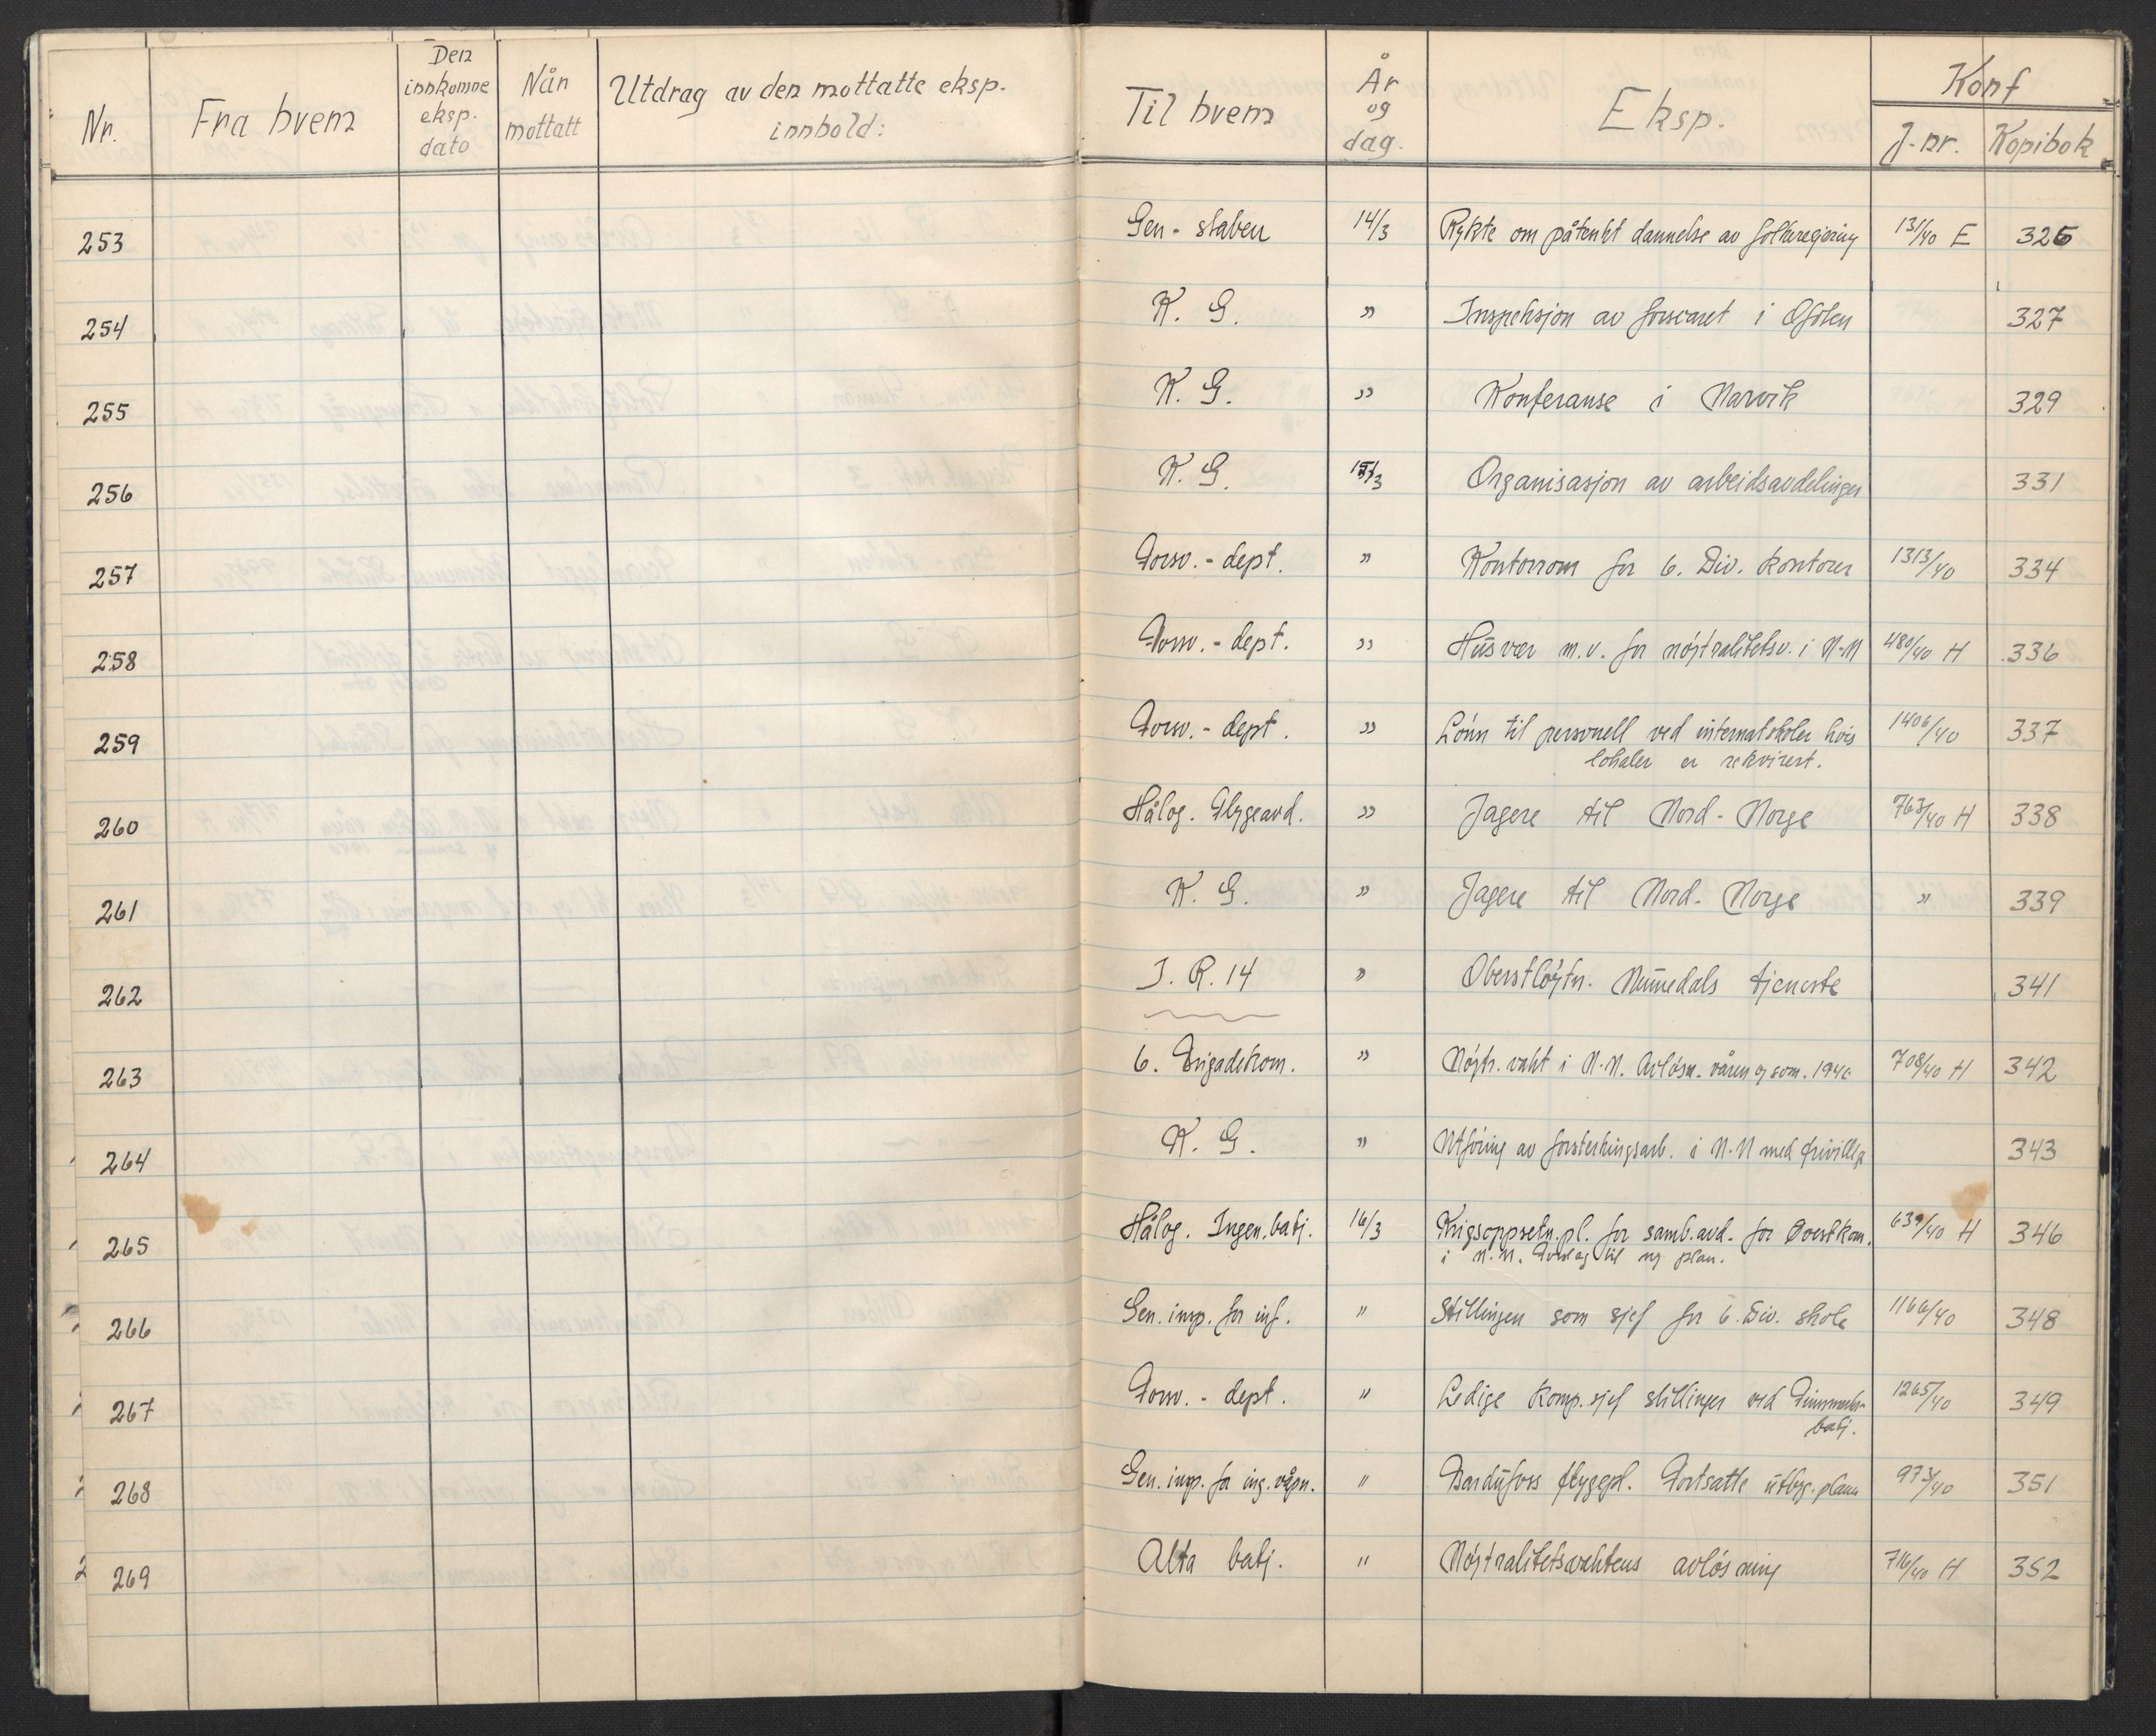 Nr. Fra hvem Den innkomne eksp. dato Når mottatt Utdrag av den mottatte eksp. innhold: Til hvem År og dag. Eksp. Konf J-nr. Kopibok
253 Gen-staben 14/3 Rykte om påtenkt dannelse av folkeregjering 131/40 E 326
254 K. G. " Inspeksjon av forsvaret i Ofoten 327
255 K. G. " Konferanse i Narvik 329
256 K. G. 15/3 Organisasjon av arbeidsavdelinger 331
257 Forsv.-dept. " Kontorrom for 6. Div. kontorer 1313/40 334
258 Forsv.-dept. " Husvær m.v. for nøytralitetsv. i N-N 480/40 H 336
259 Forsv.-dept. " Lønn til personell ved internatskoler hvis 1406/40 337
lokaler er rekvirert.
260 Hålog. Flygeavd. " Jagere til Nord-Norge 763/40 H 338
261 K. G. " Jagere til Nord-Norge " 339
262 I. R. 14 " Oberstløytn. Numedals tjeneste 341
263 6. Brigadekom. " Nøytr. vakt i N-N. Avløsn. våren og som. 1940 708/40 H 342
264 K. G. " Utføring av forsterkningsarb. i N-N med frivillige 343
265 Hålog. Ingen.batj. 16/3 Krigsoppsetn.pl. for samb.avd. for Øverstkom. 639/40 H 346
i N.N. Forslag til ny plan.
266 Gen. insp. for inf. " Stillingen som sjef for 6. Div. skole 1166/40 348
267 Forsv.-dept. " Ledige komp.sjef stillinger ved Finnmarks- 1265/40 349
batj.
268 Gen. insp. for ing.våpn. " Bardufoss flygepl. Fortsatte utbyg. planer 973/40 351
269 Alta batj. " Nøytralitetsvaktens avløsning 716/40 H 352